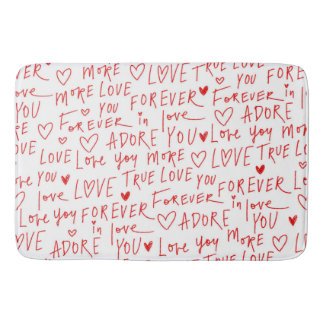 MORE LOVE TRUE LOVE YOU
YOU MORE LOVE FOREVER in love
FOREVER in love YOU
YOU ADORE YOU Love you MORE
LOVE Love you MORE LOVE TRUE LOVE
you LOVE TRUE LOVE you FOREVER in
Love you FOREVER FOREVER in love
LOVE ADORE in love ADORE YOU
ADORE YOU Love you MORE LOVE